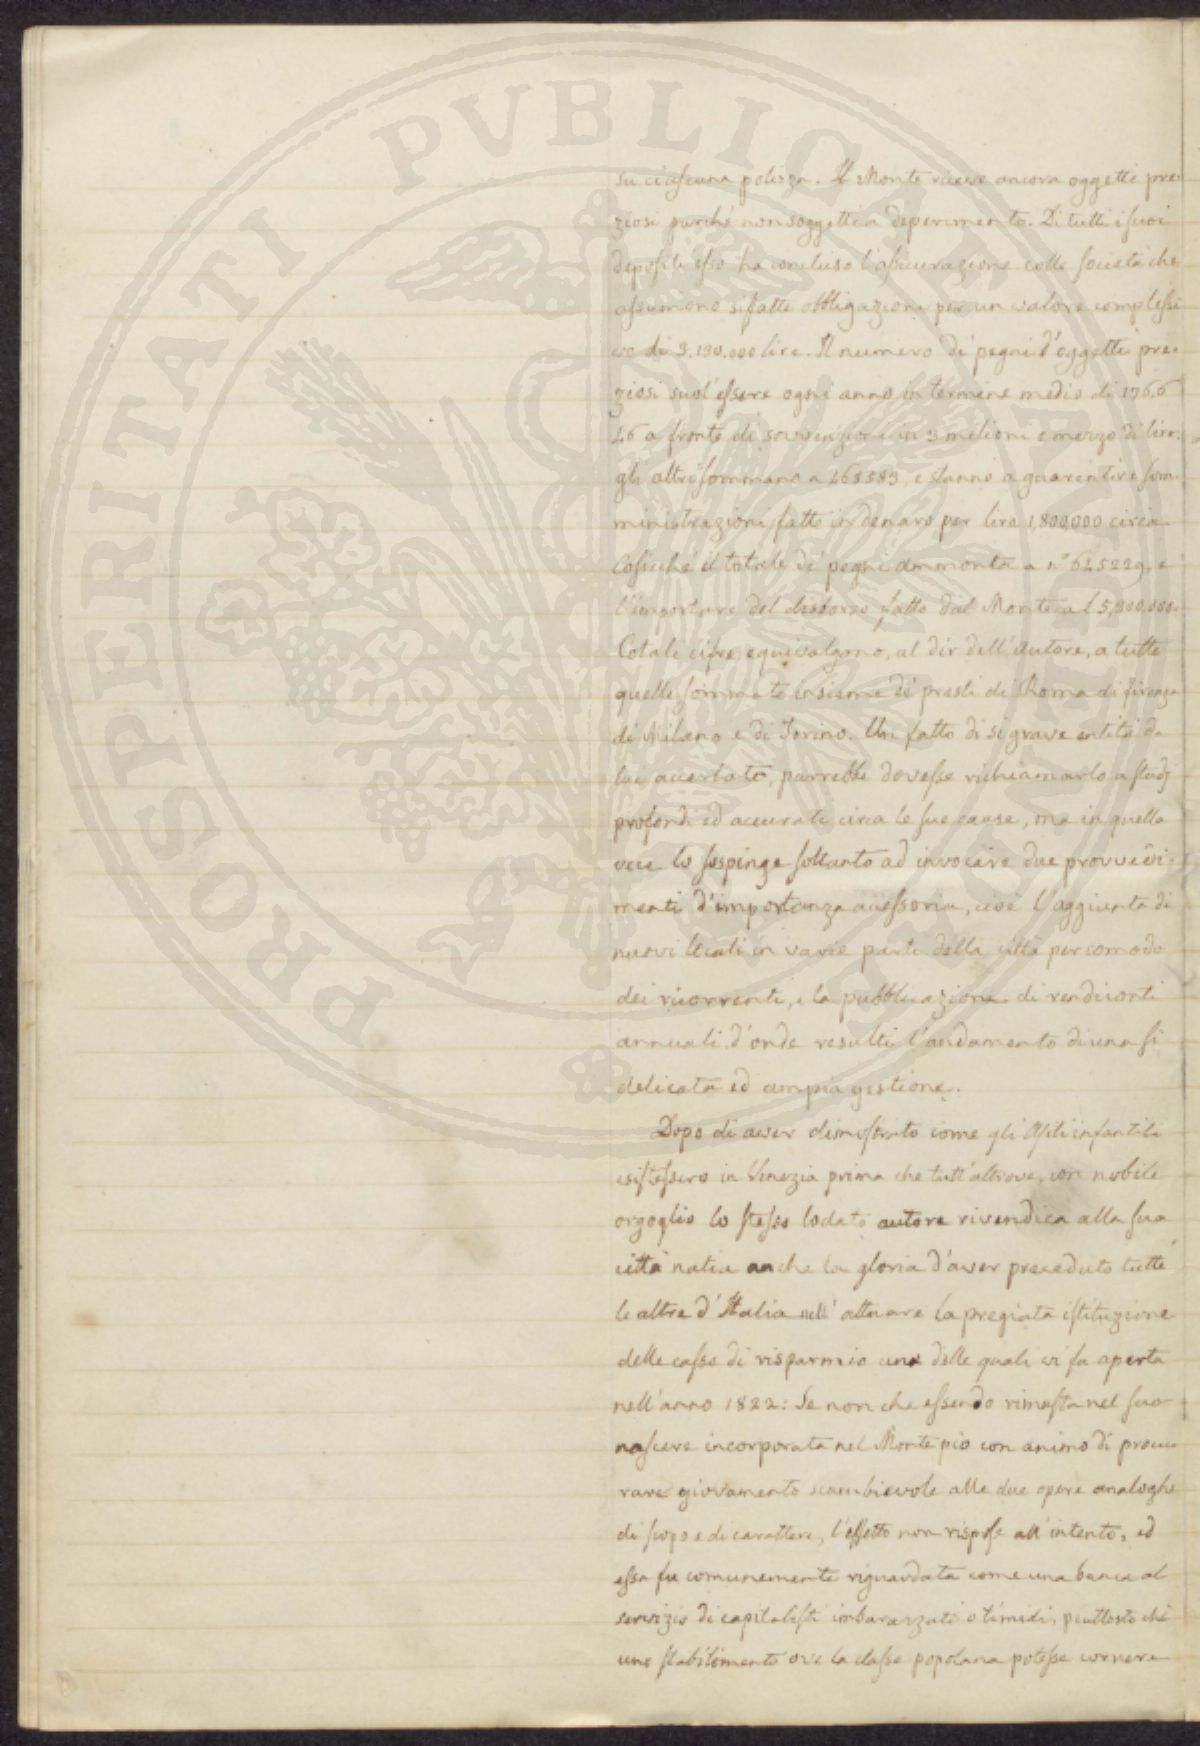 su ciascuna polizza. Il Monte riceve ancora oggetti pre-
ziosi purché non soggetti a deperimento. Di tutti i suoi
depositi esso ha concluso l'assicurazione colle società che
assumono sifatte obbligazioni per un valore complessi
vo di 3,130,000 lire. Il numero di pegni d'oggetti pre-
ziosi suol'essere ogni anno in termine medio di 1766
46 a fronte di sovvenzioni in 3 milioni e mezzo di lire.
gli altri sommano a 463583, e stanno a guarentire som-
ministrazioni fatte in denaro per lire 1,800,000 circa
Cosicché il totale de' pegni ammonta a n.° 615229, e
l'importare del disborso fatto dal Monte a l 5,300,000.
Cotali cifre equivalgono, al dir dell'autore, a tutte
quelle sommate insieme de' presti di Roma di Firenze
di Milano e di Torino. Un fatto di sì grave entità da
lui accertato, parrebbe dovesse richiamarlo a studj
profondi ed accurati circa le sue cause, ma in quella
vece lo sospinge soltanto ad invocare due provvedi-
menti d'importanza accessoria, cioè l'aggiunta di
nuovi locali in varie parti della città per comodo
dei ricorrenti, e la pubblicazione di rendiconti
annuali d'onde resulti l'andamento di una sì
delicata ed ampia gestione.
Dopo di aver dimostrato come gli Asili infantili
esistessero in Venezia prima che tutt'altrove, con nobile
orgoglio lo stesso lodato autore rivendica alla sua
città natia anche la gloria d'aver preceduto tutte
le altre d'Italia nell'attuare la pregiata istituzione
delle casse di risparmio una delle quali vi fu aperta
nell'anno 1822: Se non che essendo rimasta nel suo
nascere incorporata nel Monte pio con animo di procu
rare giovamento scambievole alle due opere analoghe
di scopo e di carattere, l'effetto non rispose all'intento, ed
essa fu comunemente riguardata come una banca al
servizio di capitalisti imbarazzati o timidi, piuttosto che
uno stabilimento ove la classe popolana potesse correre
PROSPERITATI PVBLICAE